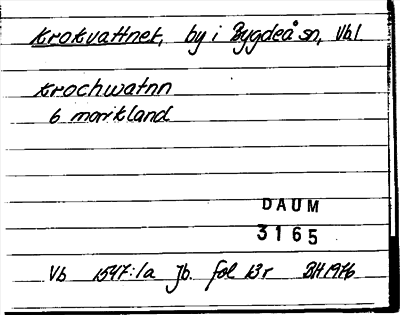 Krokvattnet, by i Bygdeå sn, Vbl
Krochwatnn
6 markland
DAUM
3165
Vb 1547:1a Jb. fol 13r BH 1976